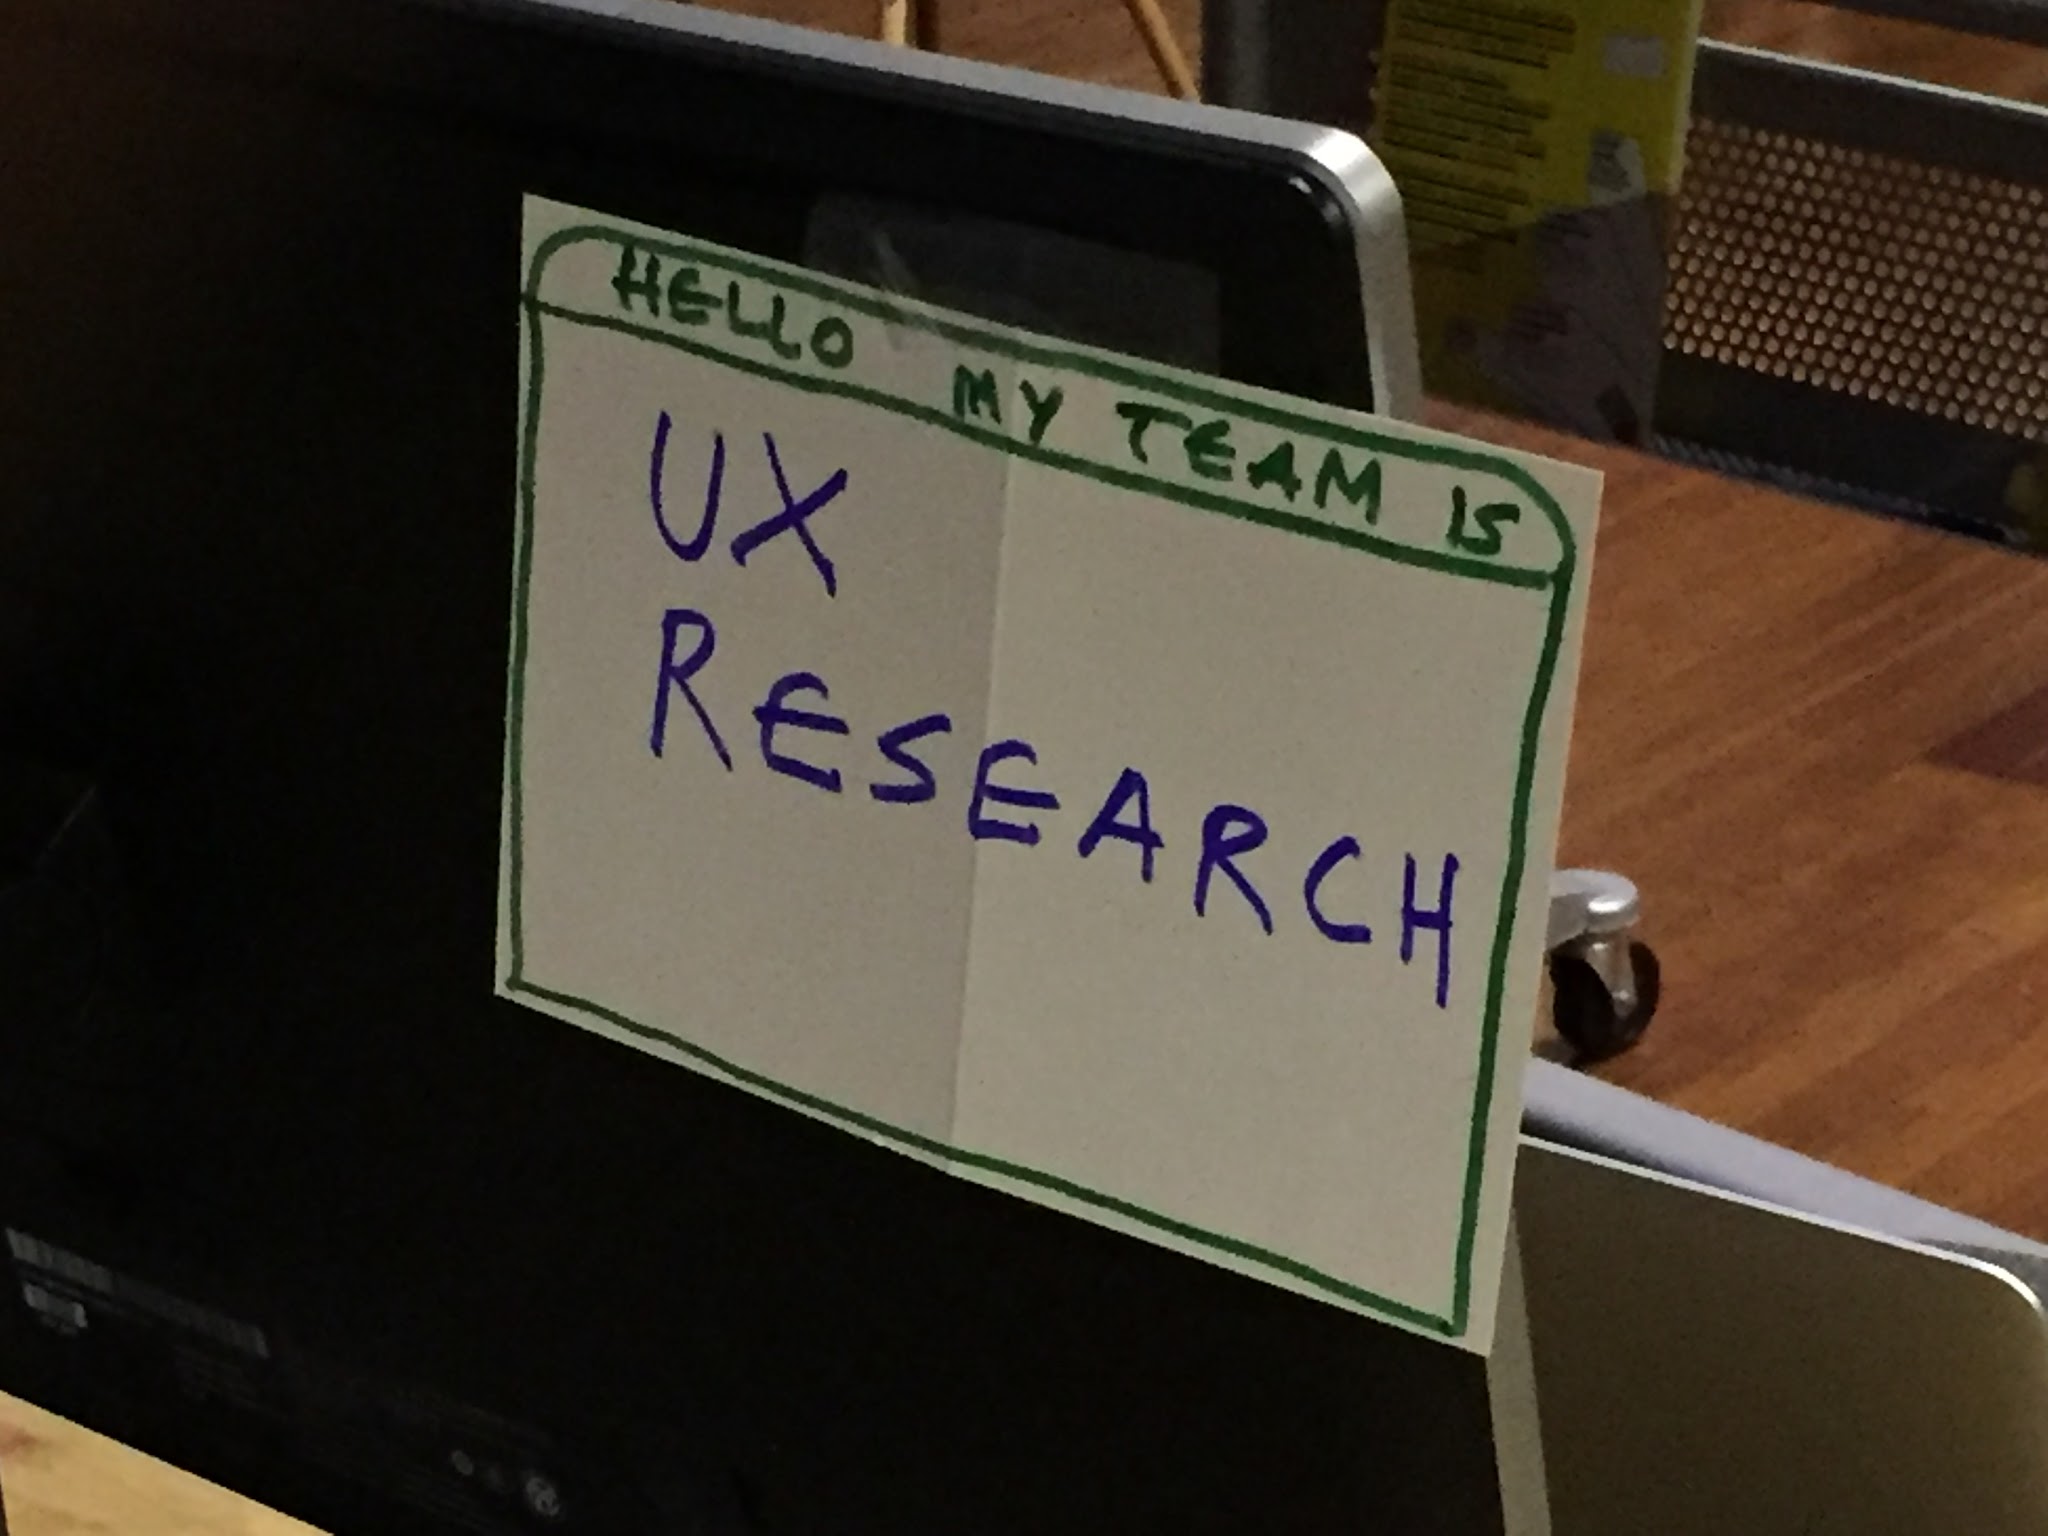 HELLO MY TEAM IS
UX
RESEARCH